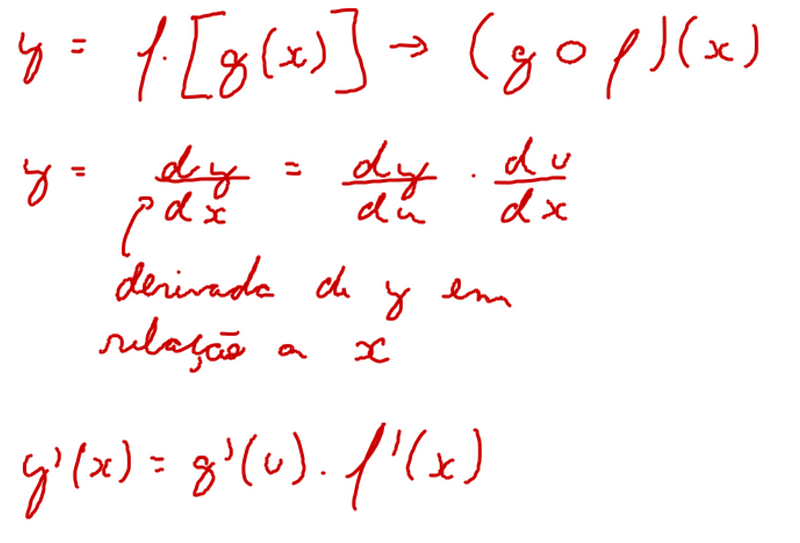 y = f·[g(x)] → (g o f)(x)
y = dy/dx = dy/du · du/dx
derivada de y em
relação a x
y'(x) = g'(u) · f'(x)